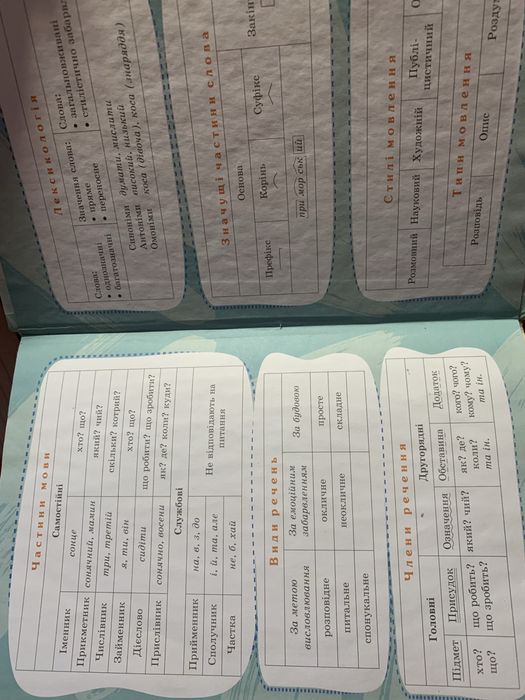 Частини мови
Самостійні
Іменник сонце хто? що?
Прикметник сонячний, мамин який? чий?
Числівник три, третій скільки? котрий?
Займенник я, ти, він хто? що?
Дієслово сидіти що робити? що зробити?
Прислівник сонячно, восени як? де? коли? куди?
Службові
Прийменник на, в, з, до Не відповідають на
Сполучник і, й, та, але питання
Частка не, б, хай
Види речень
За метою За емоційним За будовою
висловлювання забарвленням
розповідне окличне просте
питальне неокличне складне
спонукальне
Члени речення
Головні Другорядні
Підмет Присудок Означення Обставина Додаток
хто? що робить? який? чий? як? де? кого? чого?
що? що зробить? коли? кому? чому?
та ін. та ін.
Лексикологія
Слова: Значення слова: Слова:
• однозначні • пряме • загальновживані
• багатозначні • переносне • стилістично
Синоніми думати, мислити
Антоніми високий, низький
Омоніми коса (дівоча), коса (знаряддя)
Значущі частини слова
Основа
Префікс Корінь Суфікс
при мор ськ ий
Стилі мовлення
Розмовний Науковий Художній Публі-
цистичний
Типи мовлення
Розповідь Опис